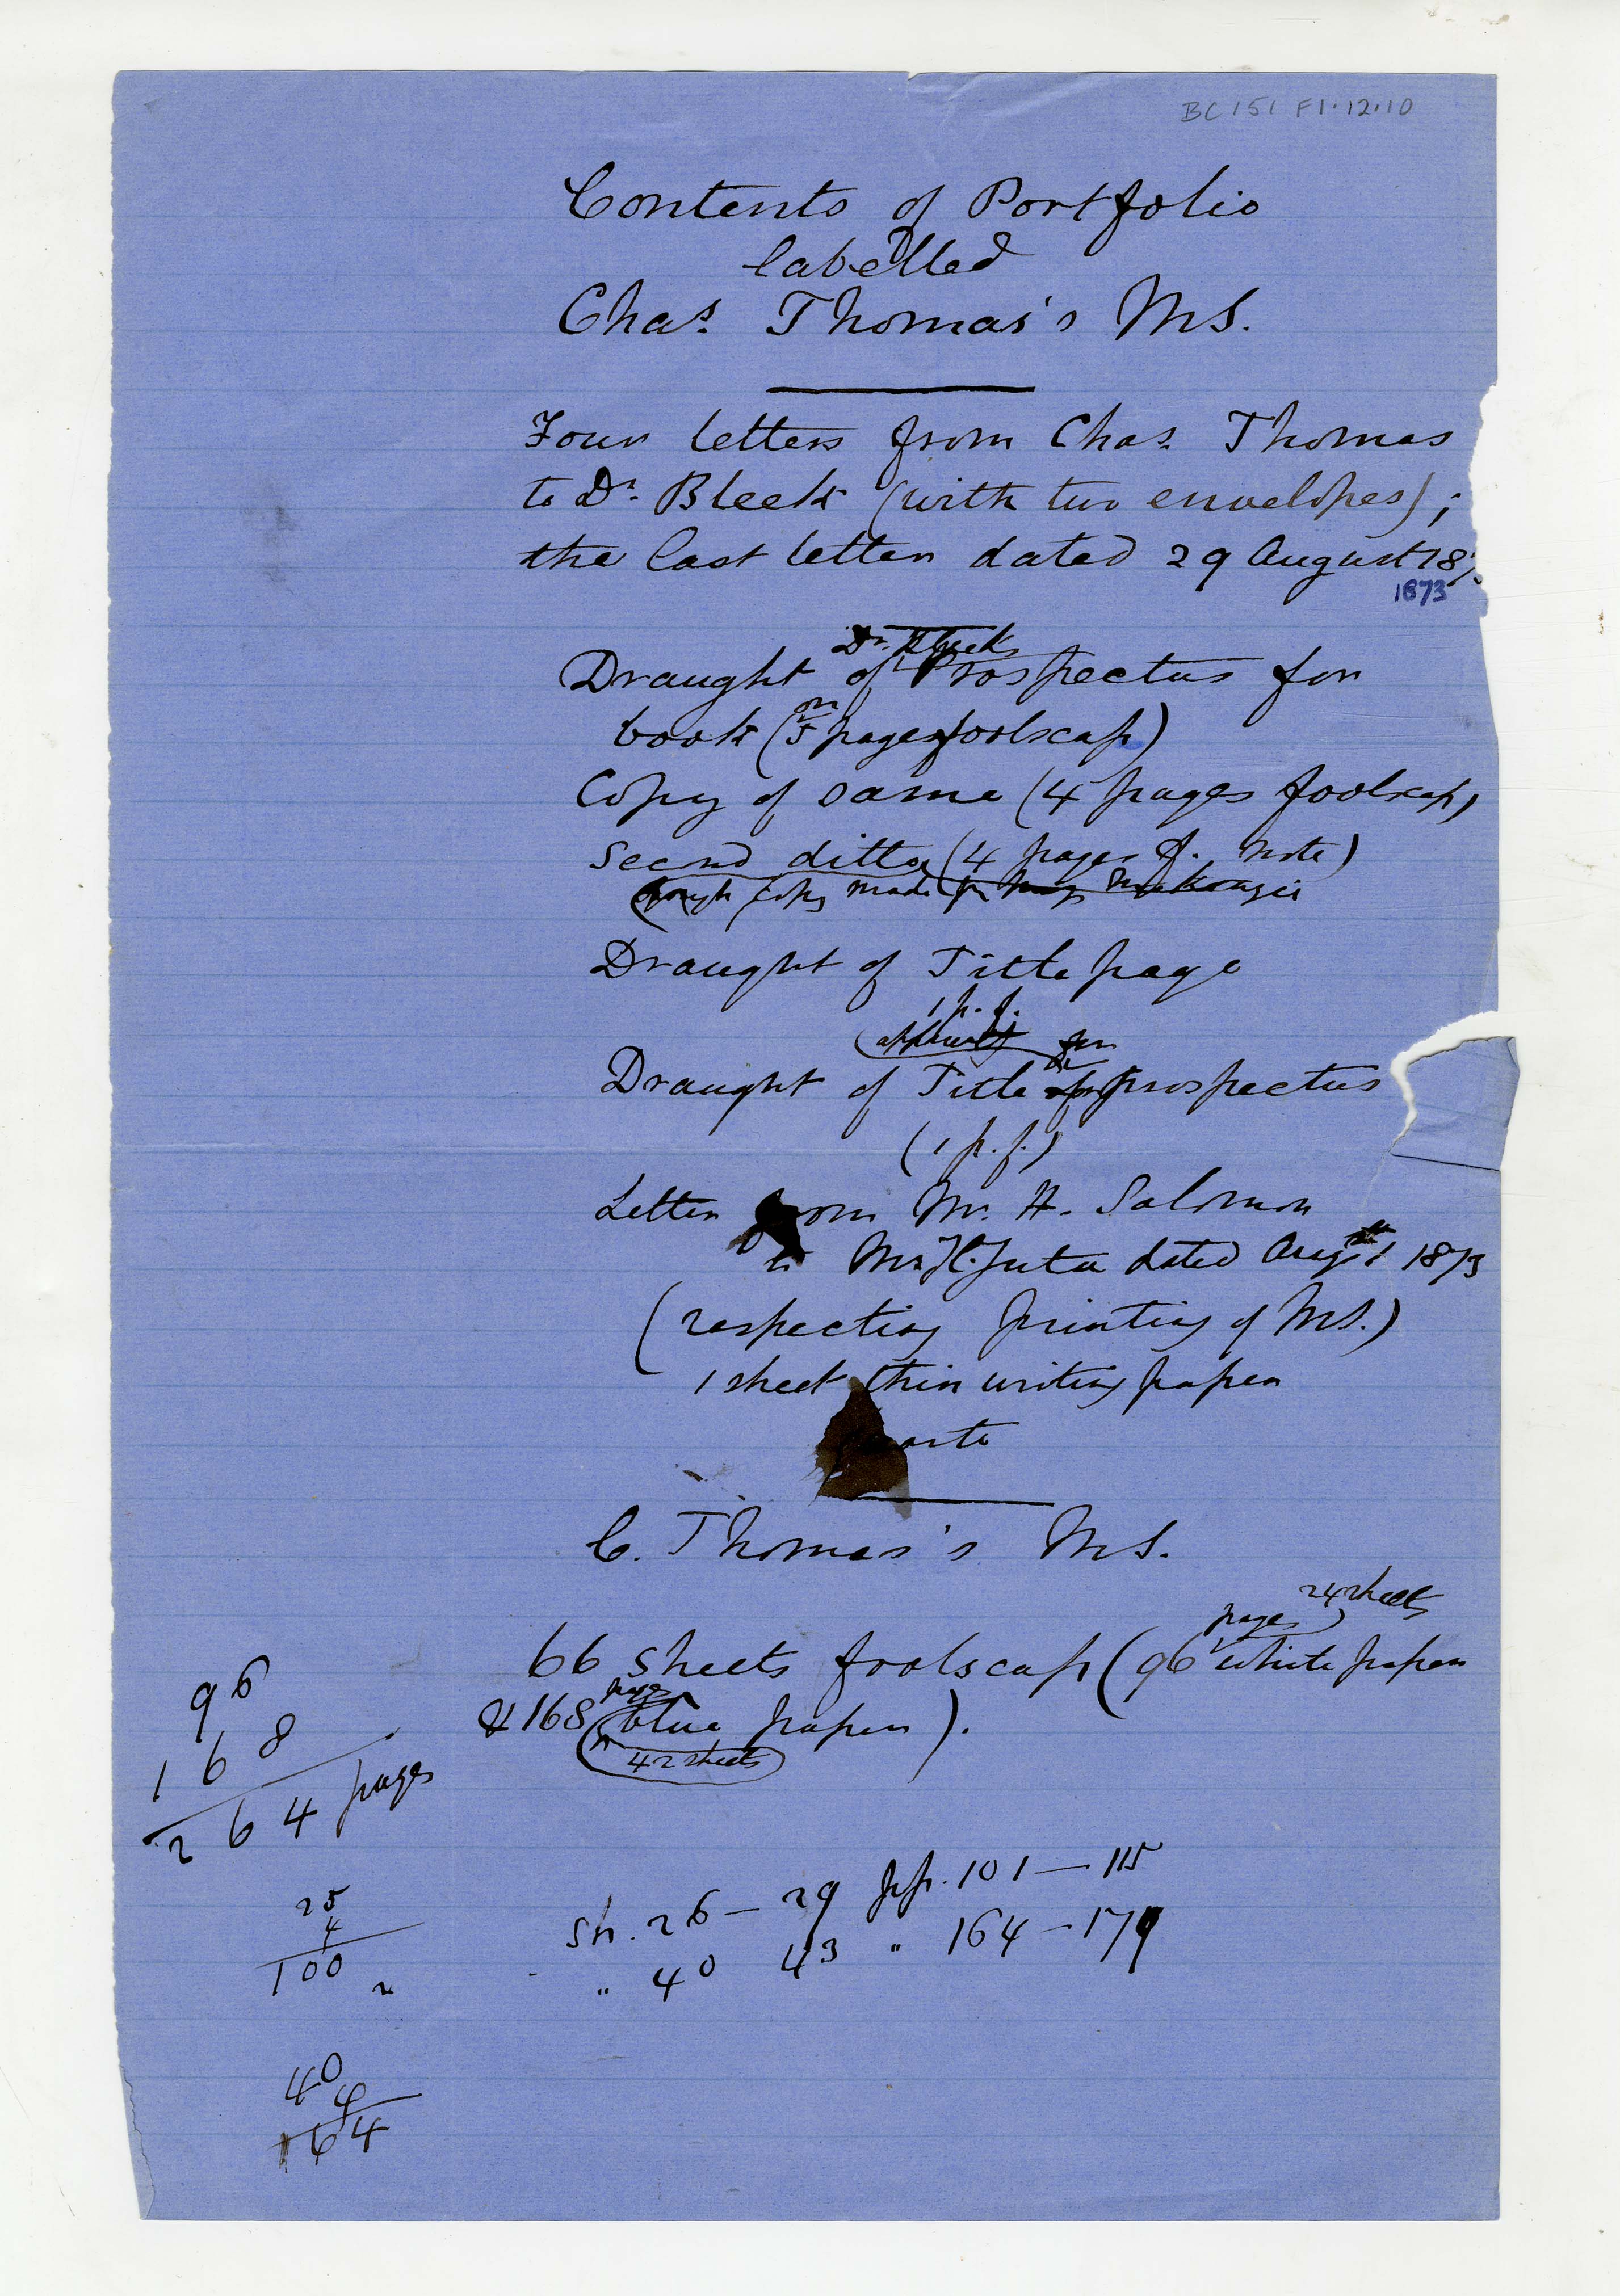 BC 151 F1.12.10
Contents of Portfolio
labelled
Chas. Thomas's MS.
Four letters from Chas. Thomas
to Dr. Bleek (with two envelopes);
the last letter dated 29 August 187
1873
Dr. Bleek's
Draught of Prospectus for
book (5 pages foolscap)
on
Copy of same (4 pages foolscap)
Second ditto (4 pages f. note)
(rough copy made for
Draught of Title page
1 p. f.
for
Draught of Title prospectus
(1 p. f.)
Letter from Mr. H. Salomon
to Mr. H. Juta dated Augst 1873
(respecting printing of MS.)
1 sheet thin writing paper
quarto
C. Thomas's MS.
24 sheets
pages
66 sheets foolscap (96 white paper
& 168 blue paper).
pages
42 sheets
96
168
264 pages
25
4
100
Sh. 26 — 29 pp. 101 — 115
" 40 43 " 164 — 179
40
4
164